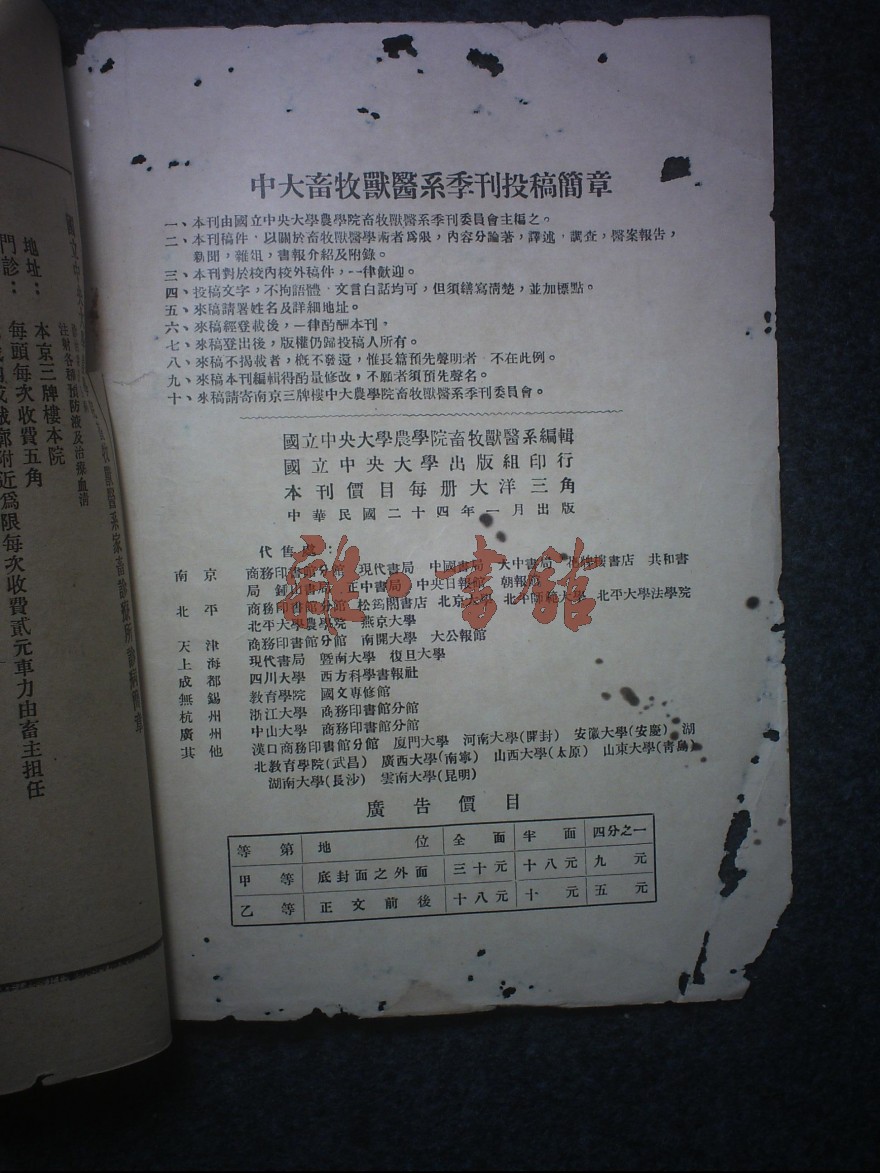 中大畜牧獸醫系季刊投稿簡章
一、本刊由國立中央大學農學院畜牧獸醫系季刊委員會主編之。
二、本刊稿件，以關於畜牧獸醫學術者爲限，內容分論著，譯述，調查，醫案報告，
新聞，雜俎，書報介紹及附錄。
三、本刊對於校內校外稿件，一律歡迎。
四、投稿文字，不拘語體，文言白話均可，但須繕寫清楚，並加標點。
五、來稿請署姓名及詳細地址。
六、來稿經登載後，一律酌酬本刊，
七、來稿登出後，版權仍歸投稿人所有。
八、來稿不揭載者，概不發還，惟長篇預先聲明者，不在此例。
九、來稿本刊編輯得酌量修改，不願者須預先聲名。
十、來稿請寄南京三牌樓中大農學院畜牧獸醫系季刊委員會。
國立中央大學農學院畜牧獸醫系編輯
國立中央大學出版組印行
本刊價目每册大洋三角
中華民國二十四年一月出版
代售處：
南京 商務印書館分館 現代書局 中國書局 大中書局 花牌樓書店 共和書
局 鍾山書局 正中書局 中央日報館 朝報館
北平 商務印書館分館 松筠閣書店 北京大學 北平師範大學 北平大學法學院
北平大學農學院 燕京大學
天津 商務印書館分館 南開大學 大公報館
上海 現代書局 暨南大學 復旦大學
成都 四川大學 西方科學書報社
無錫 教育學院 國文專修館
杭州 浙江大學 商務印書館分館
廣州 中山大學 商務印書館分館
其他 漢口商務印書館分館 廈門大學 河南大學(開封) 安徽大學(安慶) 湖
北教育學院(武昌) 廣西大學(南寧) 山西大學(太原) 山東大學(青島)
湖南大學(長沙) 雲南大學(昆明)
廣告價目
等第 地位 全面 半面 四分之一
甲等 底封面之外面 三十元 十八元 九元
乙等 正文前後 十八元 十元 五元
雜·書館
牧獸醫系家畜診療所診病簡章
國立中央大
注射各種預防液及治療血清
地址： 本京三牌樓本院
門診： 每頭每次收費五角
附近爲限每次收費貳元車力由畜主担任